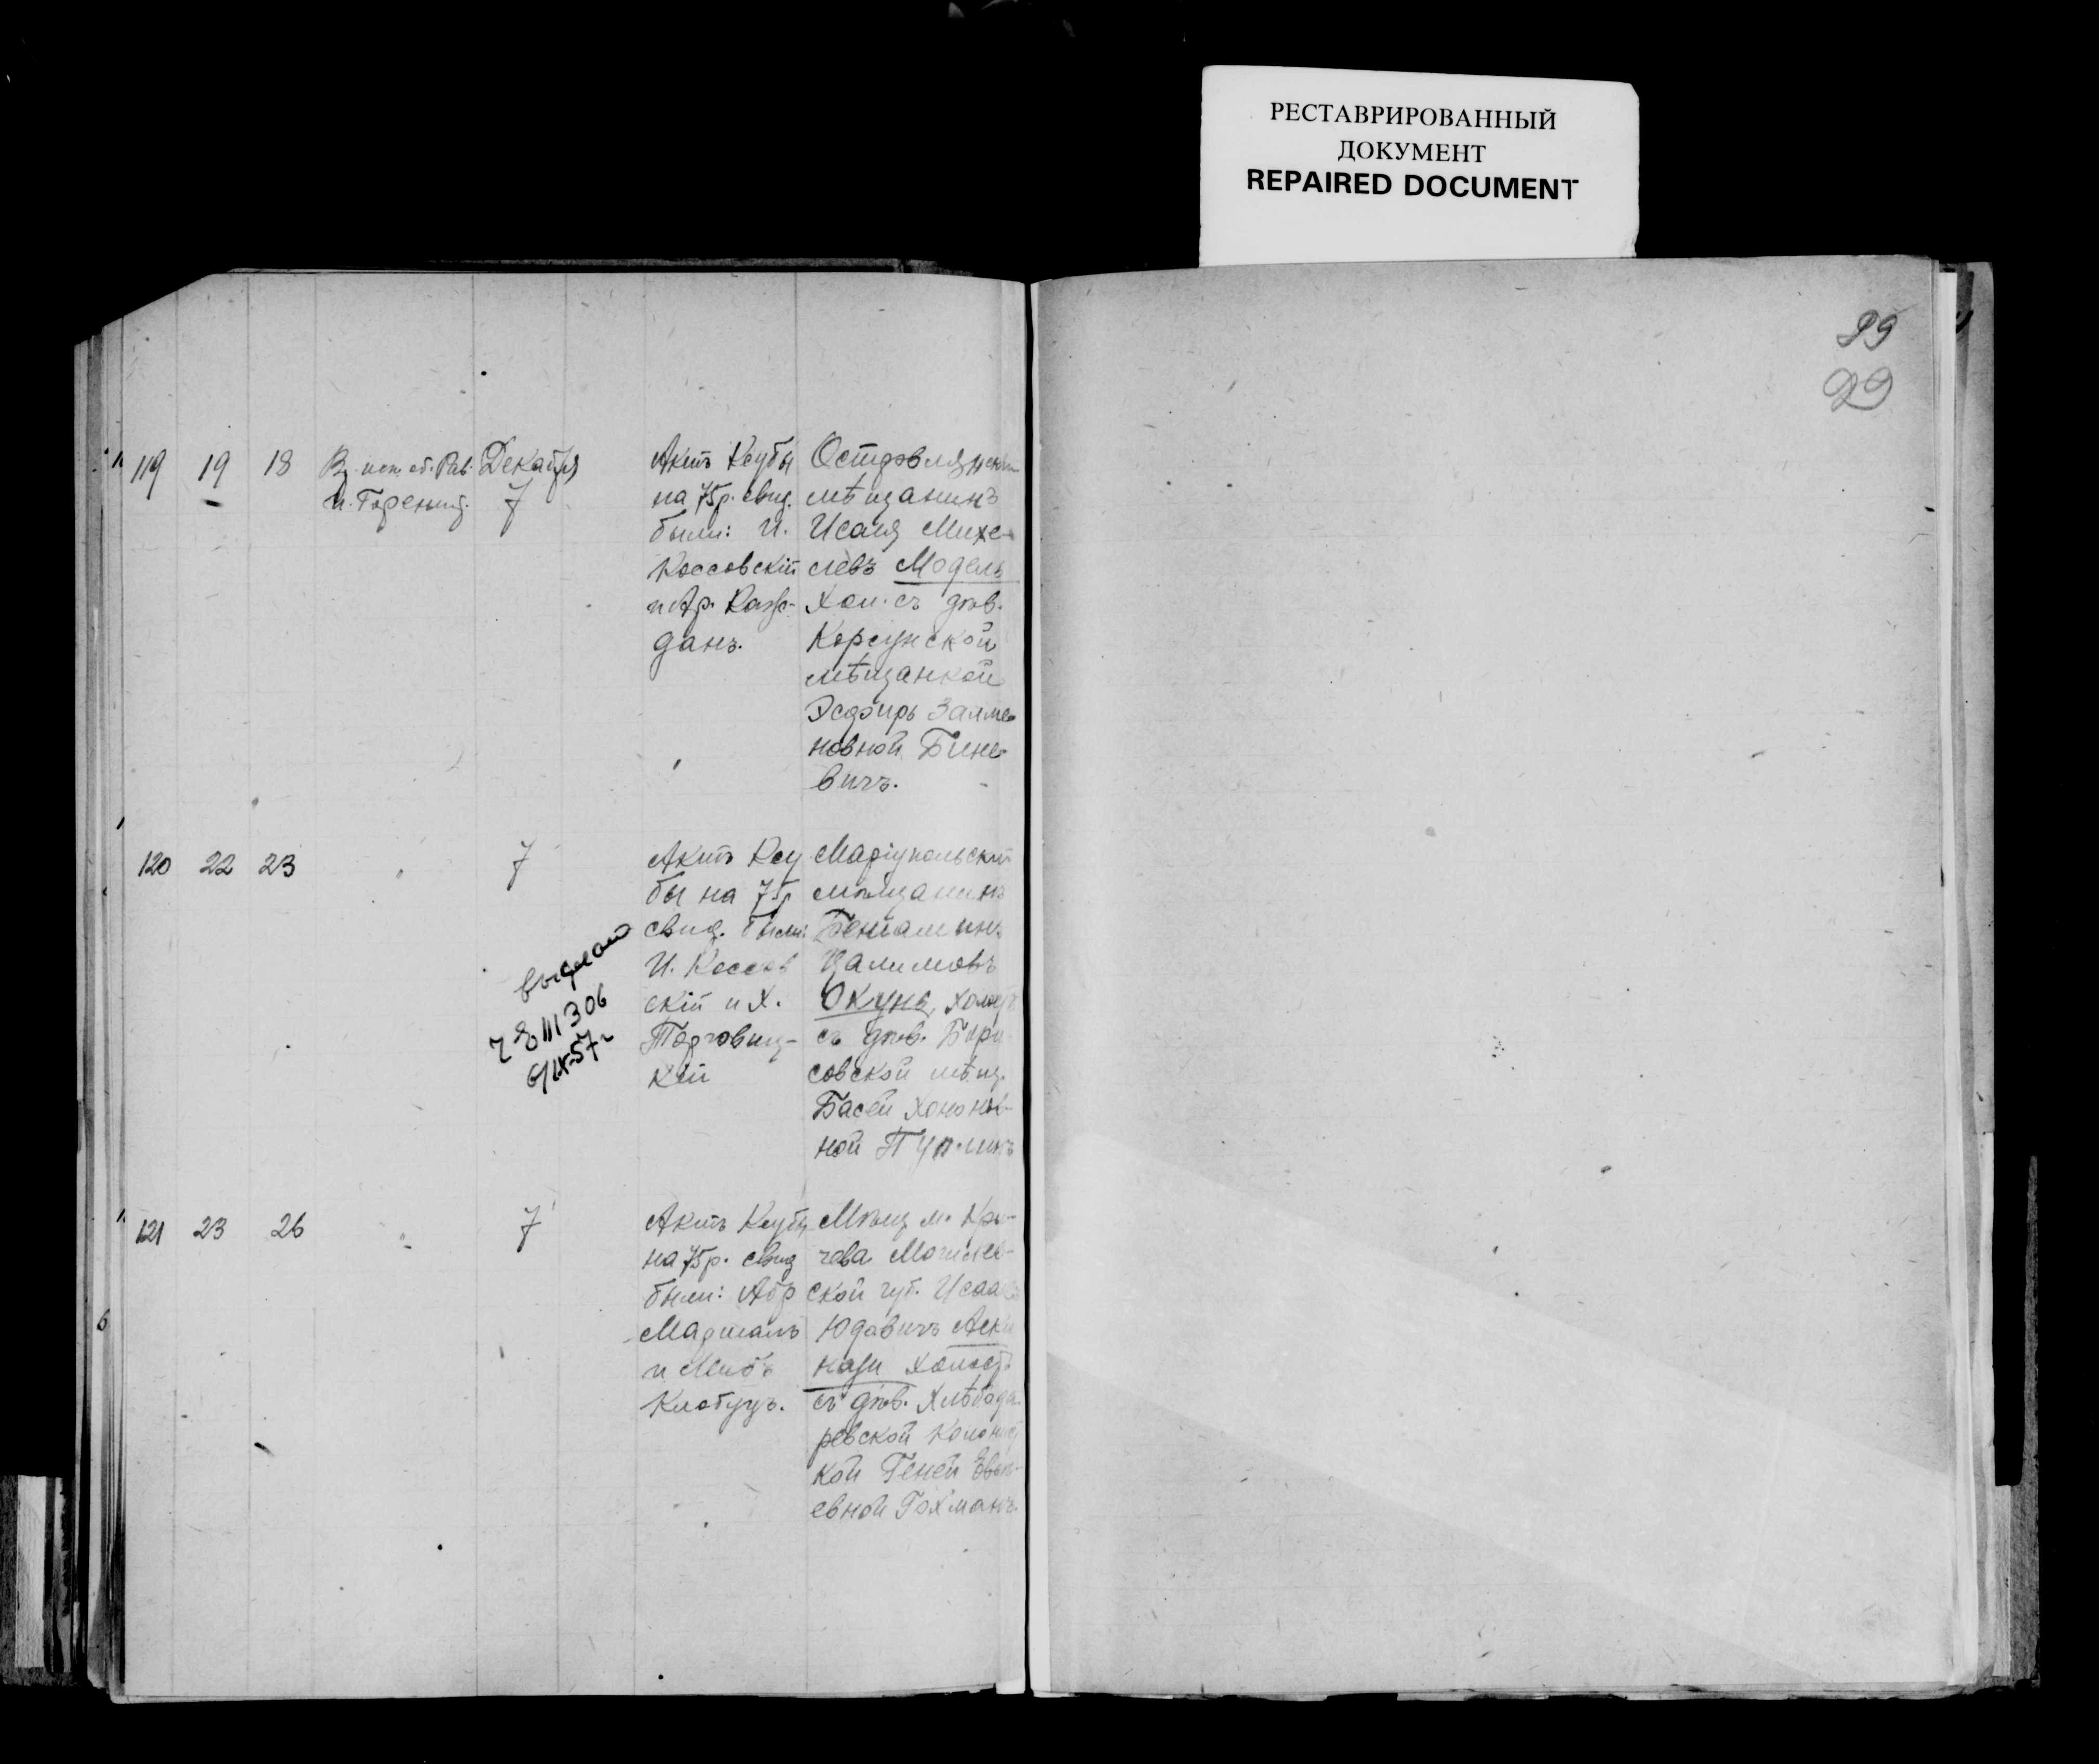 РЕСТАВРИРОВАННЫЙ
ДОКУМЕНТ
REPAIRED DOCUMENT
99
29
119 19 18
Вз. исп. об. Рав.
Декабря
7
Актъ Ксубы
на 75 р. свид.
были: И.
Коссовскій
и Ар. Каж-
данъ.
Островлянскій
мѣщанинъ
Исаія Михе-
левъ Модель
Хол. съ дѣв.
Корсунской
мѣщанкой
Эсѳирь Залма
новной Бине
вичъ.
120 22 23
7
Актъ Ксу
бы на 75 р
свид. были:
И. Коссов
скій и Х.
Торговиц-
кій
Маріупольскій
мѣщанинъ
Беніаминъ
Цалимовъ
Окунь, холост
съ дѣв. Бори
совской мѣщ.
Басей Хононов-
ной
выдано
III 306
6/IX-57 г
121 23 26
7
Актъ Ксубы
на 75 р. свид
были: Абр
Маршалъ
и Лейбъ
Клобуцъ.
Мѣщ м. Кри-
чева Могилев-
ской губ. Исаакъ
Юдовичъ Аски
нази холостъ
съ дѣв. Хлѣбода
ревской колонист
кой Геней
евной Гохманъ.